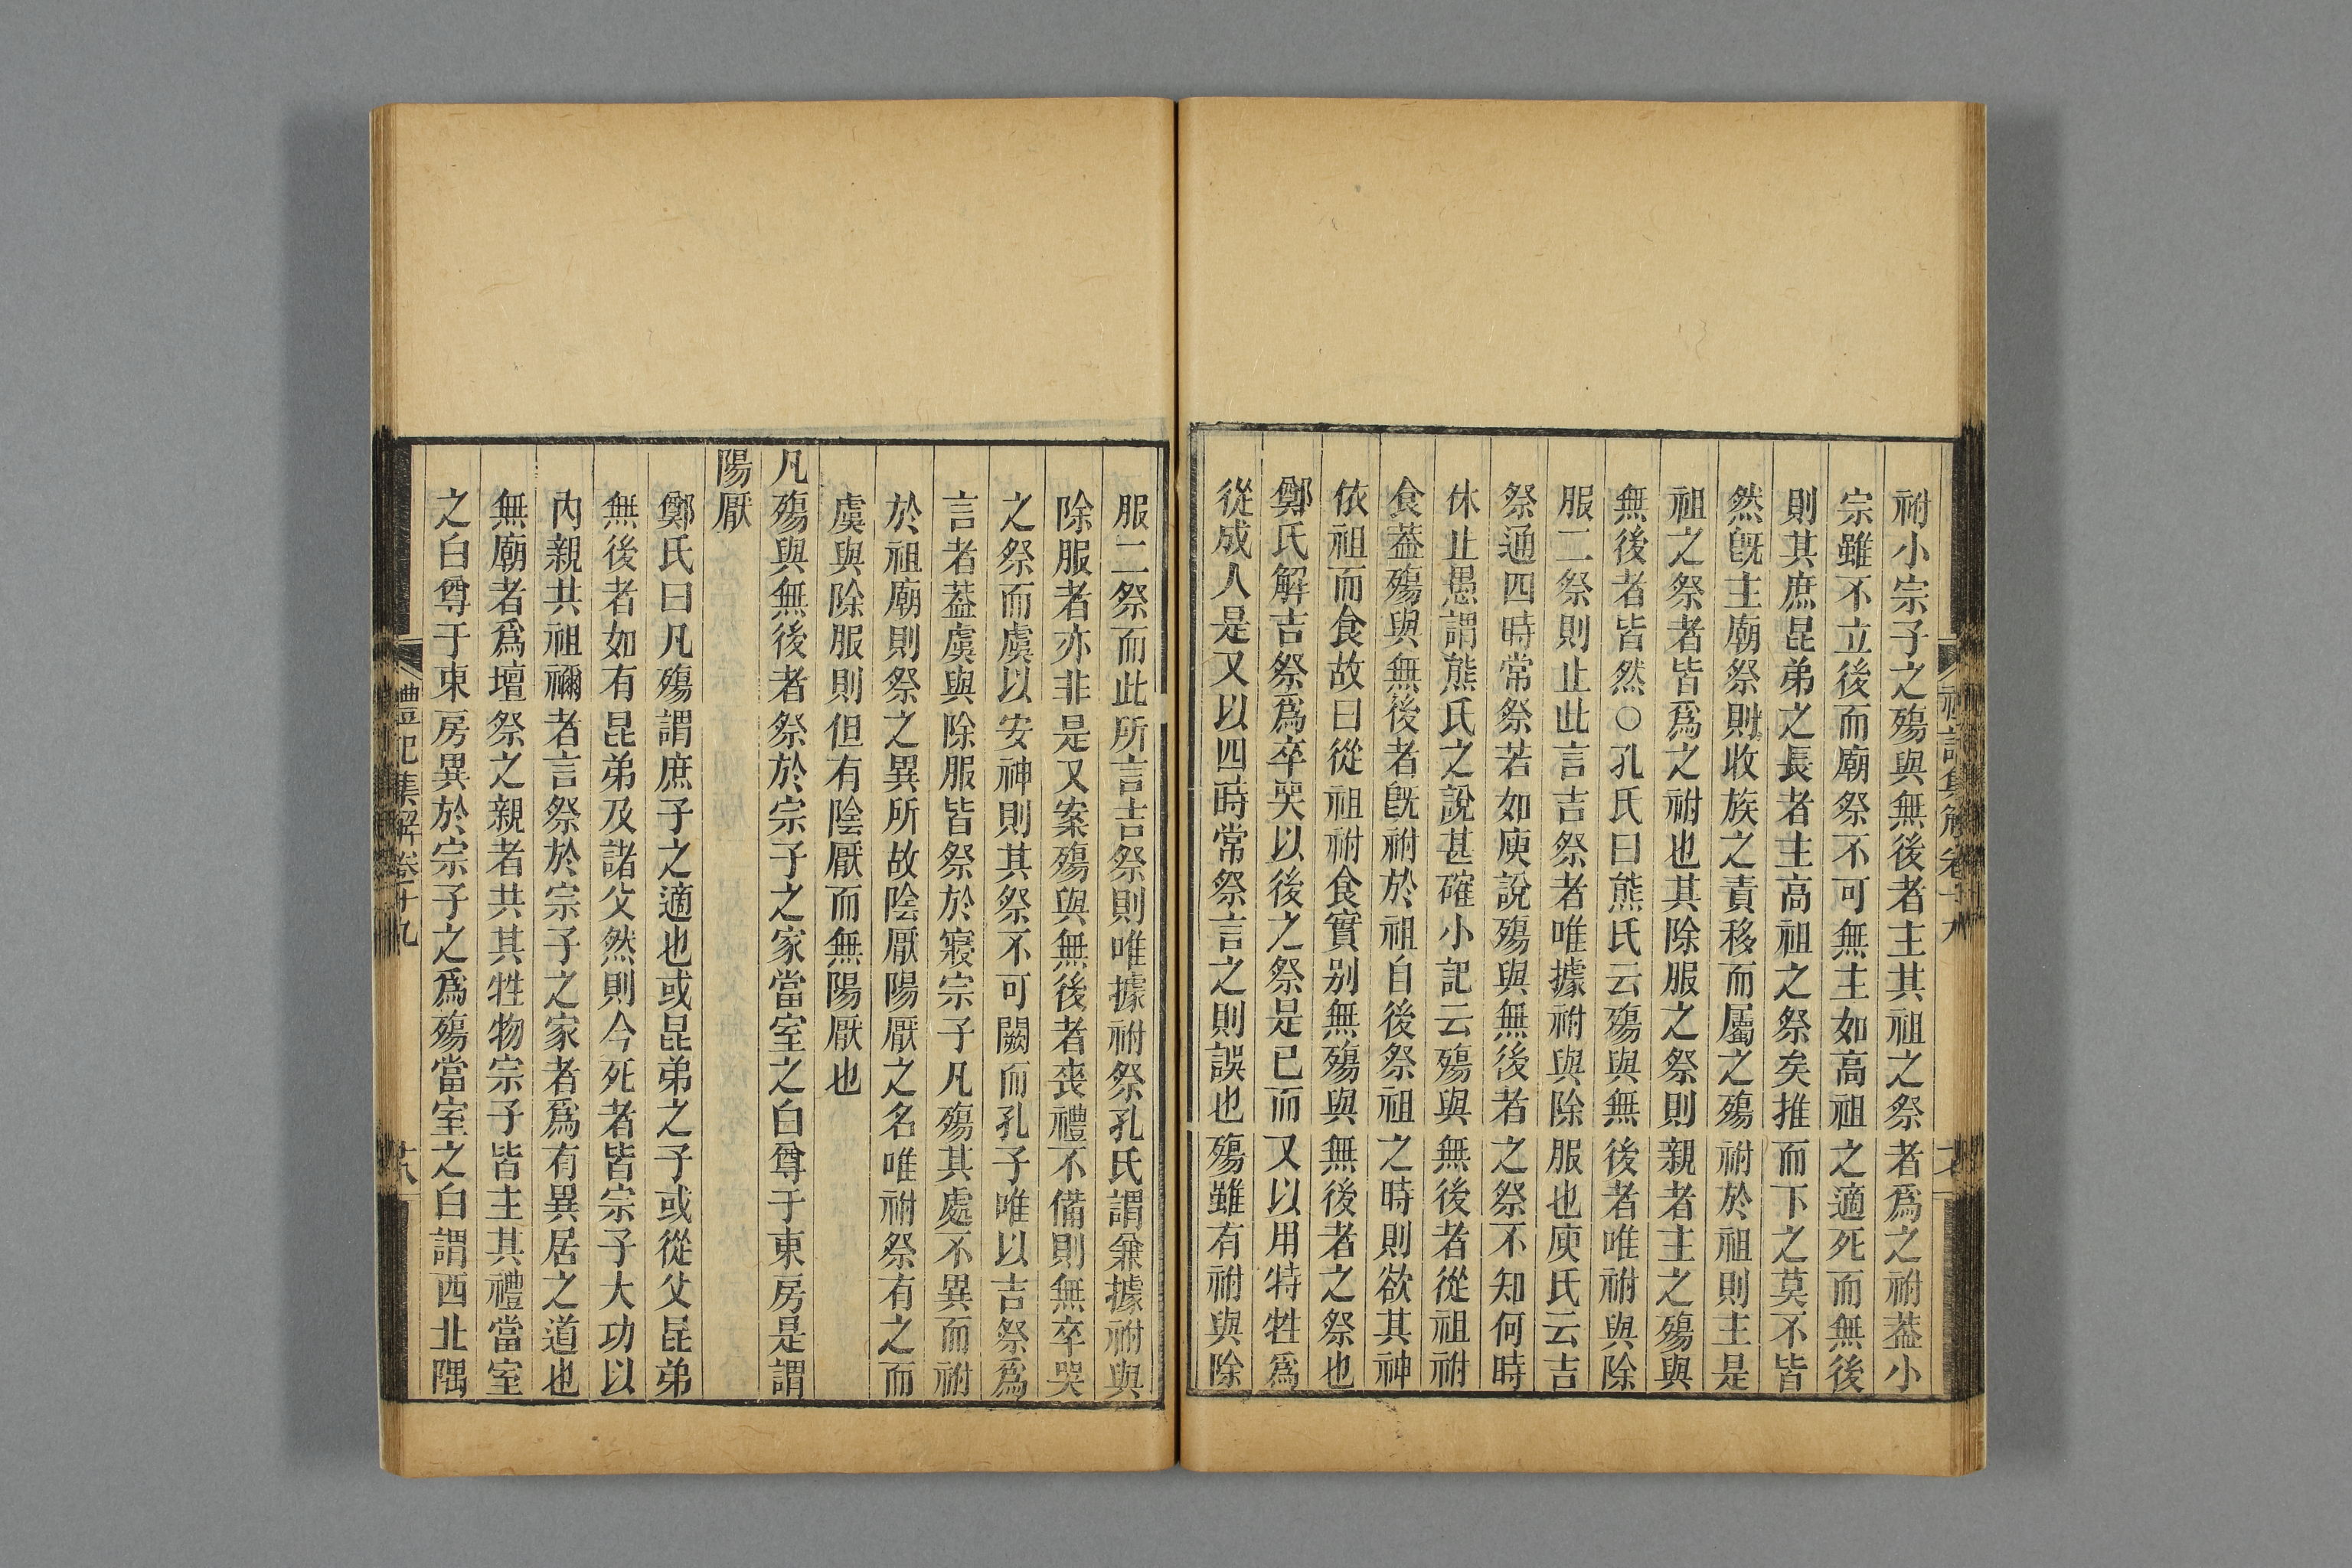 祔小宗子之殤與無後者主其祖之祭者爲之祔葢小
宗雖不立後而廟祭不可無主如高祖之適死而無後
則其庶昆弟之長者主高祖之祭矣推而下之莫不皆
然旣主廟祭則收族之責移而屬之殤祔於祖則主是
祖之祭者皆爲之祔也其除服之祭則親者主之殤與
無後者皆然○孔氏曰熊氏云殤與無後者唯祔與除
服二祭則止此言吉祭者唯據祔與除服也庾氏云吉
祭通四時常祭若如庾說殤與無後者之祭不知何時
休止愚謂熊氏之說甚確小記云殤與無後者從祖祔
食葢殤與無後者旣祔於祖自後祭祖之時則欲其神
依祖而食故曰從祖祔食實别無殤與無後者之祭也
鄭氏解吉祭爲卒哭以後之祭是已而又以用特牲爲
從成人是又以四時常祭言之則誤也殤雖有祔與除
服二祭而此所言吉祭則唯據祔祭孔氏謂兼據祔與
除服者亦非是又案殤與無後者喪禮不備則無卒哭
之祭而虞以安神則其祭不可闕而孔子唯以吉祭爲
言者葢虞與除服皆祭於寢宗子凡殤其處不異而祔
於祖廟則祭之異所故陰厭陽厭之名唯祔祭有之而
虞與除服則但有陰厭而無陽厭也
凡殤與無後者祭於宗子之家當室之白尊于東房是謂
陽厭
鄭氏曰凡殤謂庶子之適也或昆弟之子或從父昆弟
無後者如有昆弟及諸父然則今死者皆宗子大功以
內親共祖禰者言祭於宗子之家者爲有異居之道也
無廟者爲壇祭之親者共其牲物宗子皆主其禮當室
之白尊于東房異於宗子之爲殤當室之白謂西北隅
禮記集解卷十九